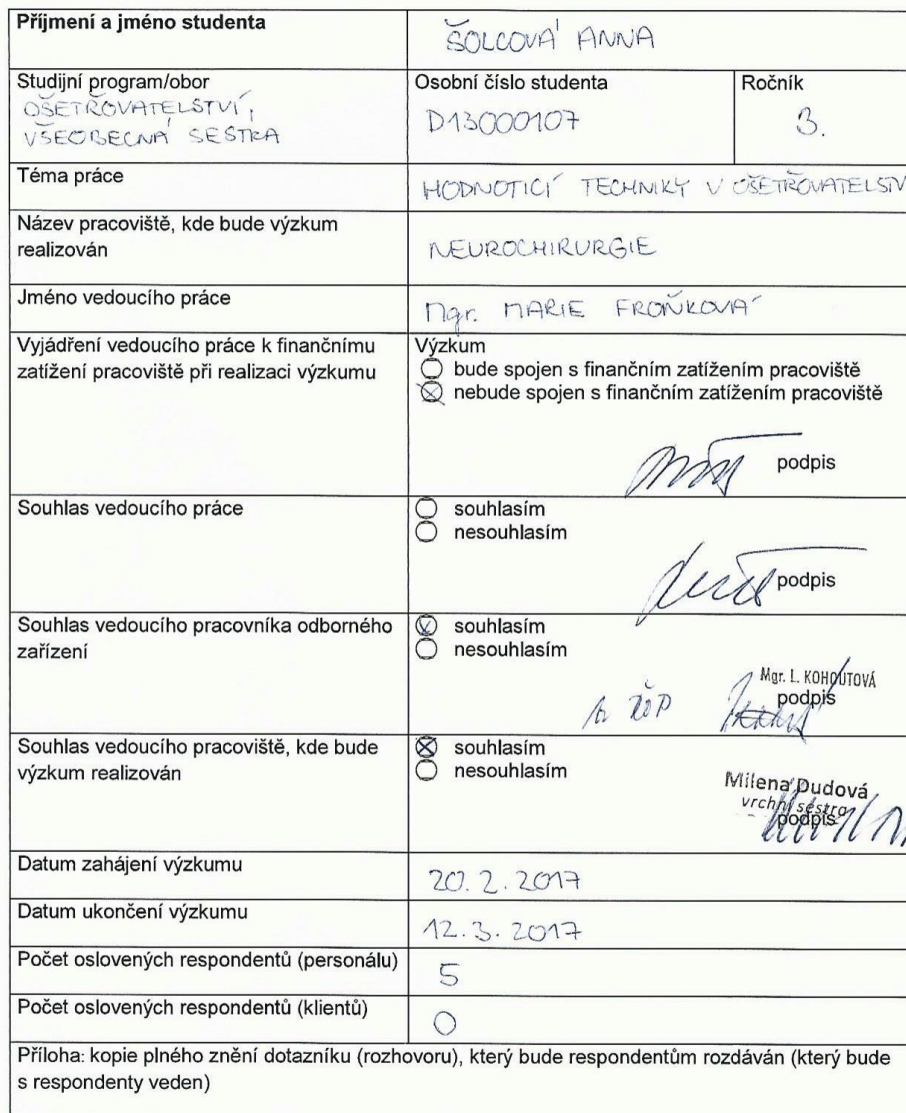 Příjmení a jméno studenta
ŠOLCOVÁ ANNA
Studijní program/obor
OŠETŘOVATELSTVÍ,
VŠEOBECNÁ SESTRA
Osobní číslo studenta
D13000107
Ročník
3.
Téma práce
HODNOTICÍ TECHNIKY V OŠETŘOVATELSTV
Název pracoviště, kde bude výzkum
realizován
NEUROCHIRURGIE
Jméno vedoucího práce
Mgr. MARIE FROŇKOVÁ
Vyjádření vedoucího práce k finančnímu
zatížení pracoviště při realizaci výzkumu
Výzkum
bude spojen s finančním zatížením pracoviště
nebude spojen s finančním zatížením pracoviště
podpis
Souhlas vedoucího práce
souhlasím
nesouhlasím
podpis
Souhlas vedoucího pracovníka odborného
zařízení
souhlasím
nesouhlasím
Mgr. L. KOHOUTOVÁ
podpis
Souhlas vedoucího pracoviště, kde bude
výzkum realizován
souhlasím
nesouhlasím
Milena Dudová
vrchní sestra
podpis
Datum zahájení výzkumu
20. 2. 2017
Datum ukončení výzkumu
12. 3. 2017
Počet oslovených respondentů (personálu)
5
Počet oslovených respondentů (klientů)
0
Příloha: kopie plného znění dotazníku (rozhovoru), který bude respondentům rozdáván (který bude
s respondenty veden)